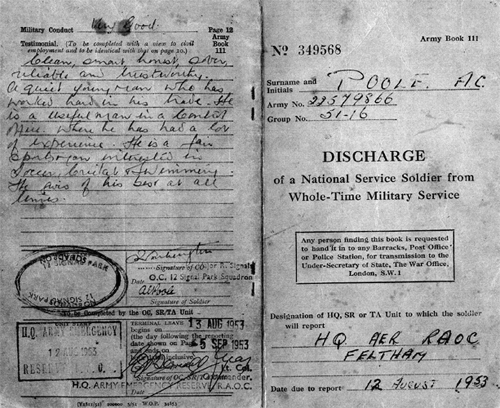 Military Conduct Very Good. Page 12
Testimonial. (To be completed with a view to civil Army
employment and to be identical with that on page 10.) Book
111
Clean, smart honest, sober,
reliable and trustworthy.
A quiet young man who has
worked hard in his trade. He
is a useful man in a
office where he has had a lot
of experience. He is a fair
sportsman interested in
Soccer, Cricket & Swimming.
He gives of his best at all
times.
Signature of CO for R. Signals
O.C. 12 Signal Park Squadron
Date
A C Poole
Signature of Soldier
To be completed by the OC, SR/TA Unit
12 SIGNAL PARK
SQUADRON
H.Q. ARMY EMERGENCY
12 AUG 1953
RESERVE R.A.O.C.
TERMINAL LEAVE 13 AUG 1953
begins on
(the day following the reported
date shown on Page
and ends on 5 SEP 1953
Lt. Col.
Commander.
H.Q. ARMY EMERGENCY RESERVE R.A.O.C.
Army Book 111
No 349568
Surname and POOLE. AC.
Initials
Army No. 22579866
Group No. 51-16
DISCHARGE
of a National Service Soldier from
Whole-Time Military Service
Any person finding this book is requested
to hand it in to any Barracks, Post Office
or Police Station, for transmission to the
Under-Secretary of State, The War Office,
London, S.W.1
Designation of HQ, SR or TA Unit to which the soldier
will report
HQ AER RAOC
FELTHAM
Date due to report 12 AUGUST 1953